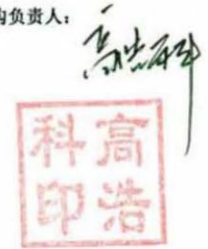 负责人：
高浩科
高浩
科印